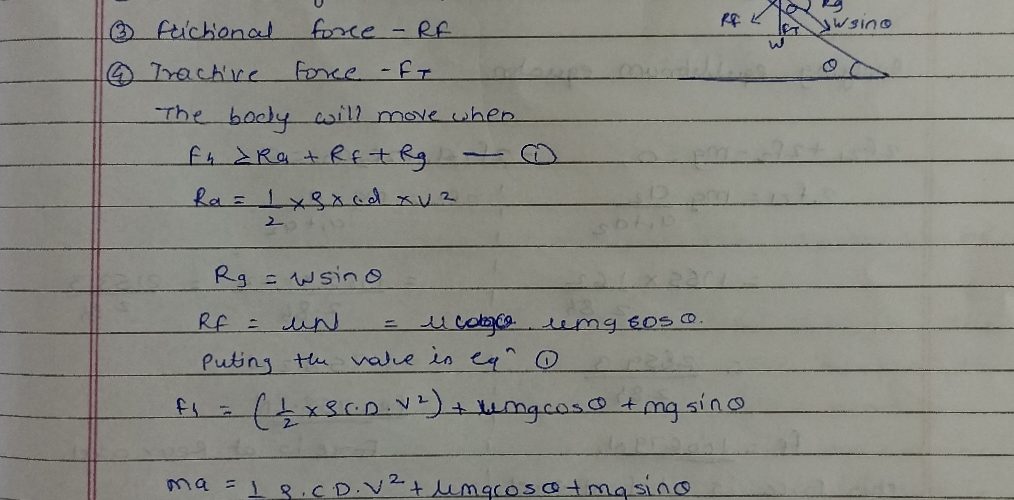 ③ frictional force - Rf
④ Tractive force - FT
The body will move when
Ft ≥ Ra + Rf + Rg — ①
Ra = 1/2 × ρ × c.d × v²
Rg = w sin θ
Rf = μN = μ mg cos θ.
Puting the value in eqⁿ ①
Ft = (1/2 × ρ C.D. V²) + μmg cos θ + mg sin θ
ma = 1 ρ. C D. V² + μmg cos θ + mg sin θ
Rg
Rf
W sin θ
FT
W
θ